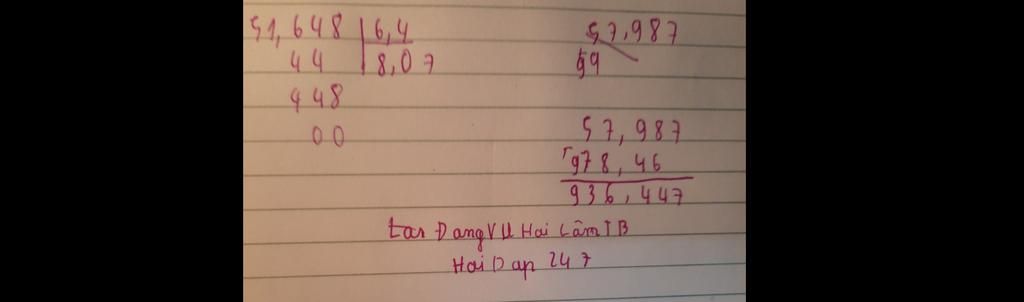 51,648 | 6,4
44 | 8,07
448
00
57,987
59
57,987
978,46
936,447
tar ĐangVU Hai Lâm TB
Hoi Dap 247